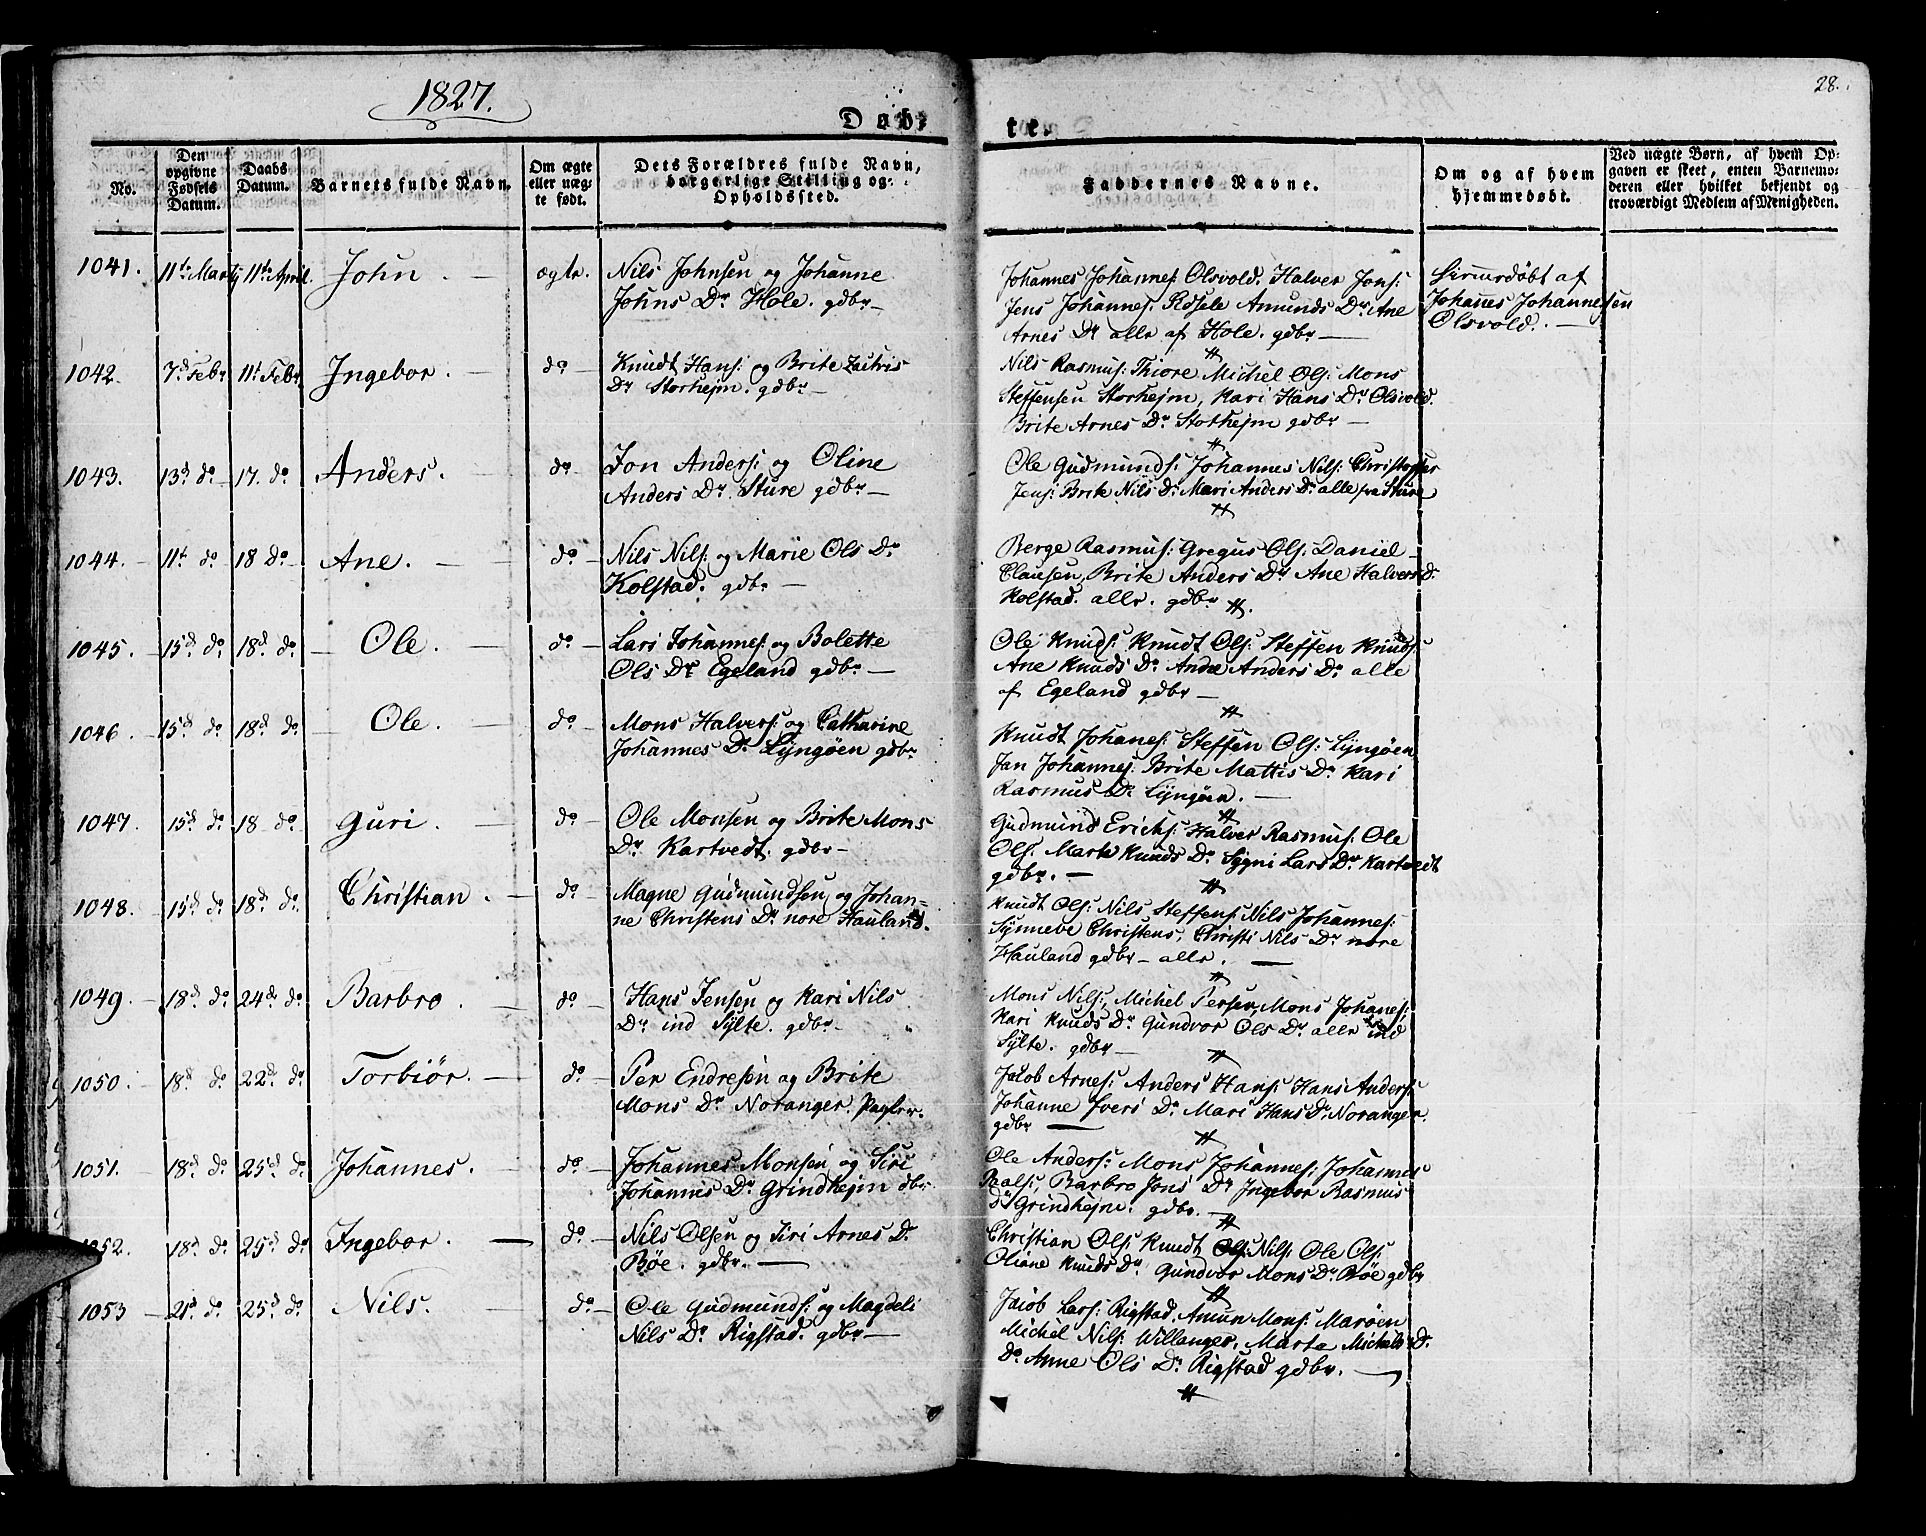 1827.
28.
Døbte.
No.
Den opgivne Fødsels Datum.
Daabs Datum.
Barnets fulde Navn.
Om ægte eller uægte født.
Dets Forældres fulde Navn, borgerlige Stilling og Opholdssted.
Faddernes Navne.
Om og af hvem hjemmedøbt.
Ved uægte Børn, af hvem Opgaven er skeet, enten Barnemoderen eller hvilket bekjendt og troværdigt Medlem af Menigheden.
1041. 11te Martj 11te April. John. ægte. Nils Johnsen og Johanne
Johns Dr Hole. gdbr
Johannes Johannes: Olsvold. Halver Jons:
Jens Johannes: Amunds Dr Ane
Arnes Dr alle af Hole. gdbr
Johanes Johannesen
Olsvold.
1042. 7d Febr 11t Febr Ingebor. do Knudt Hans: og Brite
Dr Storhejm. gdbr
Nils Rasmus: Thiore Michel Ols: Mons
Steffensen Storhejm, Kari Hans Dr Olsvold.
Brite Arnes Dr Storhejm gdbr
1043. 13d do 17. do Anders. do Jon Anders: og Oline
Anders Dr Sture gdbr
Ole Gudmunds: Johannes Nils: Christopher
Jens: Brite Nils Dr Mari Anders Dr alle fra Sture
1044. 11t do 18 do Ane. do Nils Nils: og Marie Ols Dr
Kolstad. gdbr
Berge Rasmus: Gregus Ols: Daniel
Clausen, Brite Anders Dr Ane Halvers Dr
Kolstad. alle. gdbr
1045. 15d do 18d do Ole. do Lars Johannes: og Bolette
Ols Dr Egeland gdbr
Ole Knuds: Knudt Ols: Steffen Knuds:
Ane Knuds Dr Anders Dr alle
af Egeland gdbr
1046. 15d do 18d do Ole. do Mons Halvers: og Catharine
Johannes Dr Lyngøen gdbr
Knudt Johanes: Steffen Ols: Lyngøen
Jan Johannes: Brite Mattis Dr Kari
Rasmus Dr Lyngøen.
1047. 15d do 18 do Guri. do Ole Monsen og Brite Mons
Dr Kartvedt. gdbr
Gudmund Erichs: Halver Rasmus: Ole
Ols: Marte Knuds Dr Sygni Lars Dr Kartvedt
gdbr.
1048. 15d do 18d do Christian. do Magne Gudmundsen og Johan=
ne Christens Dr nore Hauland.
Knudt Ols: Nils Steffens: Nils Johannes:
Synneve Christens, Christi Nils Dr nore
Hauland gdbr alle.
1049. 18d do 24de do Barbro. do Hans Jensen og Kari Nils
Dr ind Sylte. gdbr
Mons Nils: Michel Persen, Mons Johanes:
Kari Knuds Dr Gundvor Ols Dr alle ind
Sylte. gdbr
1050. 18d do 22de do Torbiør. do Per Endresen og Brite
Mons Dr Noranger.
Jacob Arnes: Anders Hans: Hans Anders:
Johanne Ivers Dr Mari Hans Dr Noranger.
gdbr
1051. 18d do 25de do Johannes. do Johannes Monsen og Siri
Johannis Dr Grindhejm gdbr
Ole Anders: Mons Johannes: Johannes
Paals: Barbro Jons Dr Ingebor Rasmus
Dr Grindhejm. gdbr.
1052. 18d do 25d do Ingebor. do Nils Olsen og Siri Arnes Dr
Bøe. gdbr.
Christian Ols: Knudt Nils: Ole Ols:
Oliane Knuds Dr Gundvor Mons Dr Bøe gdbr
1053 21d do 25d do Nils. do Ole Gudmunds: og Magdeli
Nils Dr Rigstad. gdbr
Jacob Lars: Rigstad. Amun Mons: Marøen
Michel Nils: Willanger, Marta Michels Dr
Do Anne Ols Dr Rigstad gdbr.